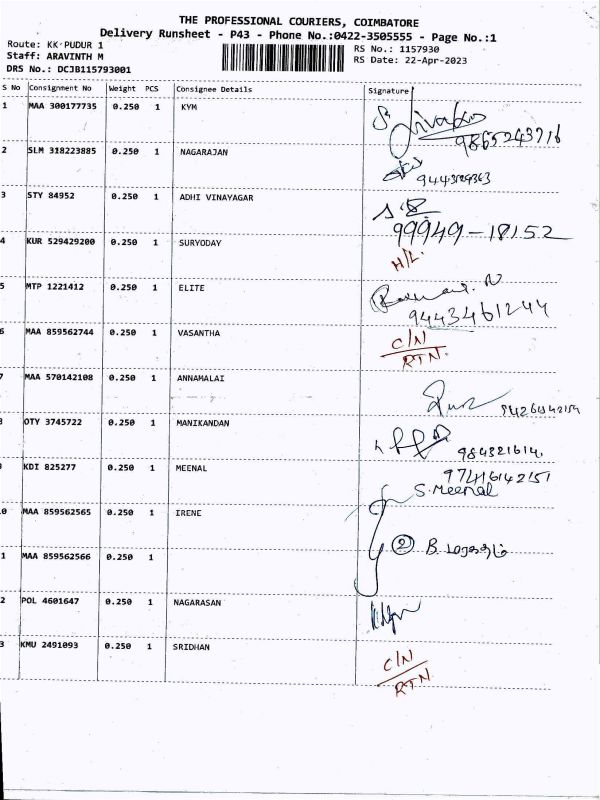 THE PROFESSIONAL COURIERS, COIMBATORE
Delivery Runsheet - P43 - Phone No.:0422-3505555 - Page No.:1
Route: KK PUDUR 1
RS No.: 1157930
Staff: ARAVINTH M
RS Date: 22-Apr-2023
DRS No.: DCJB115793001
S No Consignment No Weight PCS Consignee Details Signature
1 MAA 300177735 0.250 1 KYM
9865243716
2 SLM 318223885 0.250 1 NAGARAJAN
3 STY 84952 0.250 1 ADHI VINAYAGAR
99949-18152
4 KUR 529429200 0.250 1 SURYODAY H/L.
5 MTP 1221412 0.250 1 ELITE
9443461244
6 MAA 859562744 0.250 1 VASANTHA C/N
RTN.
7 MAA 570142108 0.250 1 ANNAMALAI
8 OTY 3745722 0.250 1 MANIKANDAN
984321614.
9 KDI 825277 0.250 1 MEENAL 97416142151
S. Meenal
0 MAA 859562565 0.250 1 IRENE
1 MAA 859562566 0.250 1 2 B.
2 POL 4601647 0.250 1 NAGARASAN
3 KMU 2491093 0.250 1 SRIDHAN C/N
RTN